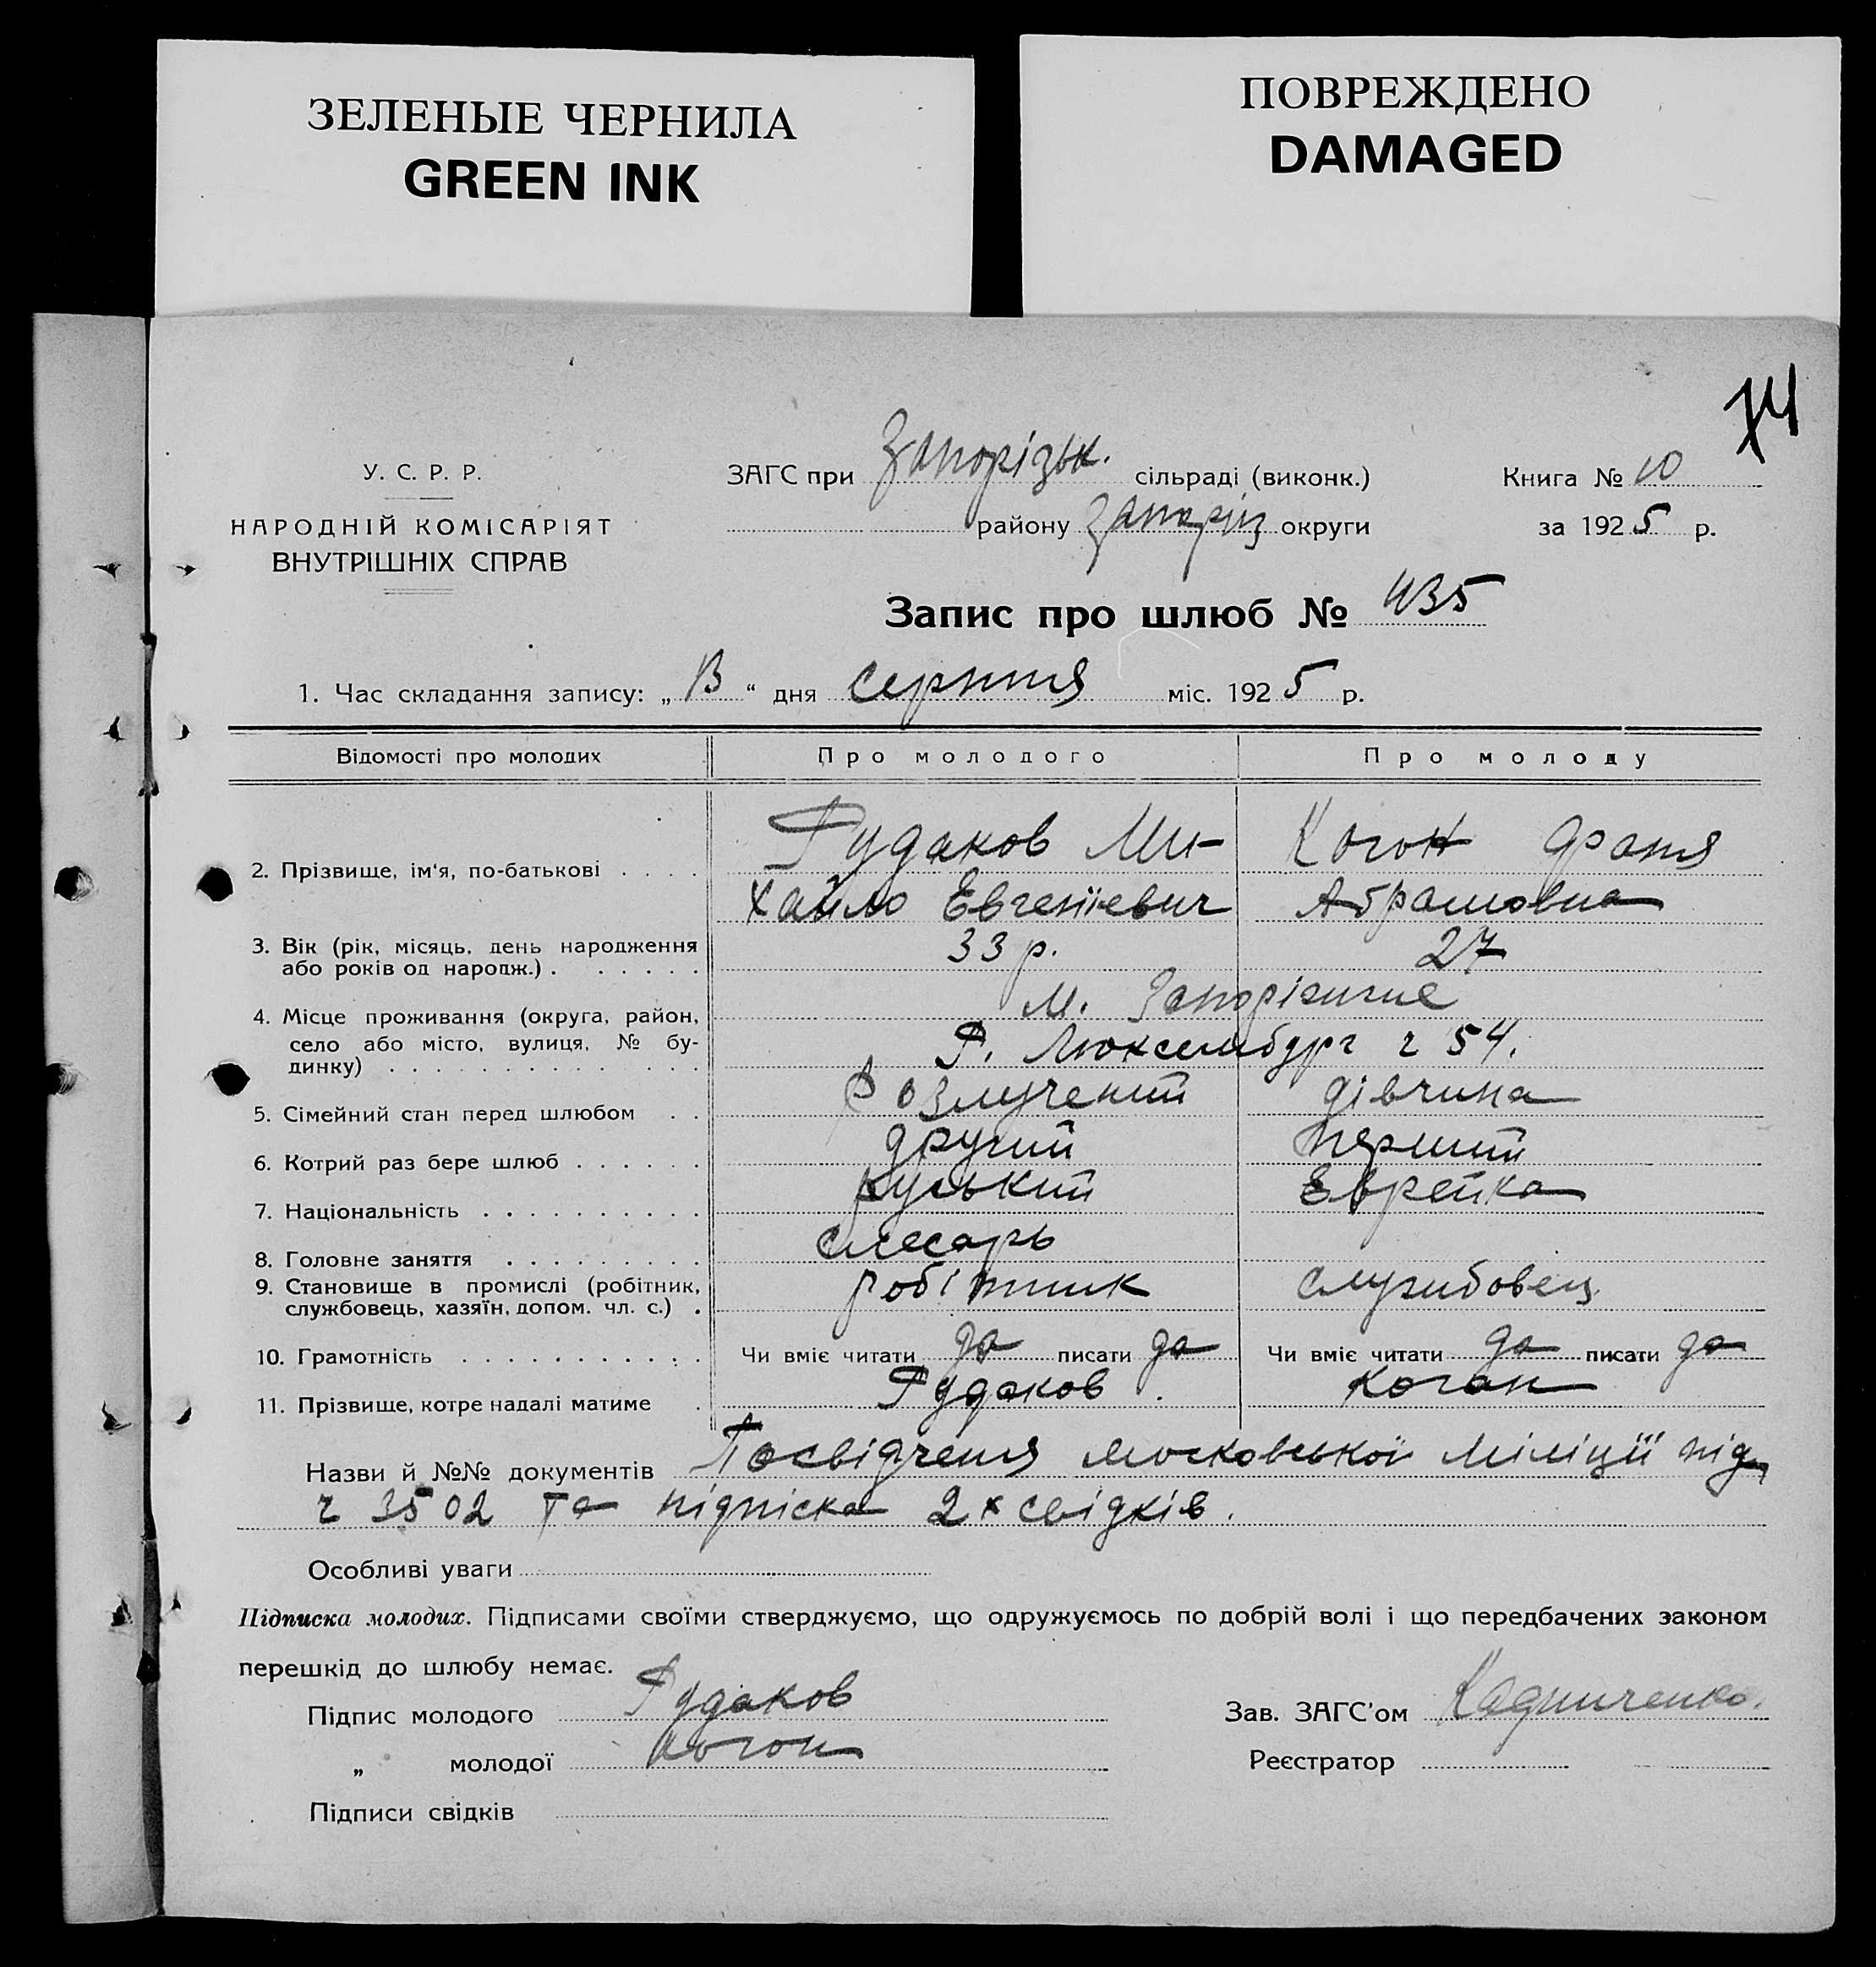 ЗЕЛЕНЫЕ ЧЕРНИЛА
GREEN INK
ПОВРЕЖДЕНО
DAMAGED
74
У. С. Р. Р.
НАРОДНІЙ КОМІСАРІЯТ
ВНУТРІШНІХ СПРАВ
ЗАГС при Запорізьк. сільраді (виконк.)
району Запоріз округи
Книга № 10
за 1925 р.
Запис про шлюб № 435
1. Час складання запису: „13“ дня серпня міс. 1925 р.
Відомості про молодих Про молодого Про молоду
2. Прізвище, ім'я, по-батькові . . . . Рудаков Ми- Коган Фаня
хайло Евгенїевич Абрамовна
3. Вік (рік, місяць, день народження 33 р. 27
або років од народж.) . . . . . .
4. Місце проживання (округа, район, м. Запоріжже
село або місто, вулиця, № бу- Р. Люксембург ч 54.
динку) . . . . . . . . . . . . . .
5. Сімейний стан перед шлюбом . . Розлучений дівчина
6. Котрий раз бере шлюб . . . . . . другий перший
7. Національність . . . . . . . . . . руський Еврейка
8. Головне заняття . . . . . . . . . слесарь
9. Становище в промислі (робітник, робітник службовец
службовець, хазяїн, допом. чл. с.) .
10. Грамотність . . . . . . . . . . . Чи вміє читати да писати да Чи вміє читати да писати да
11. Прізвище, котре надалі матиме . Рудаков . Коган
Назви й №№ документів Посвідченя московської міліції під
ч 3502 та підпіска 2х свідків.
Особливі уваги
Підписка молодих. Підписами своїми стверджуємо, що одружуємось по добрій волі і що передбачених законом
перешкід до шлюбу немає.
Підпис молодого Рудаков
„ молодої Коган
Підписи свідків
Зав. ЗАГС'ом
Реєстратор